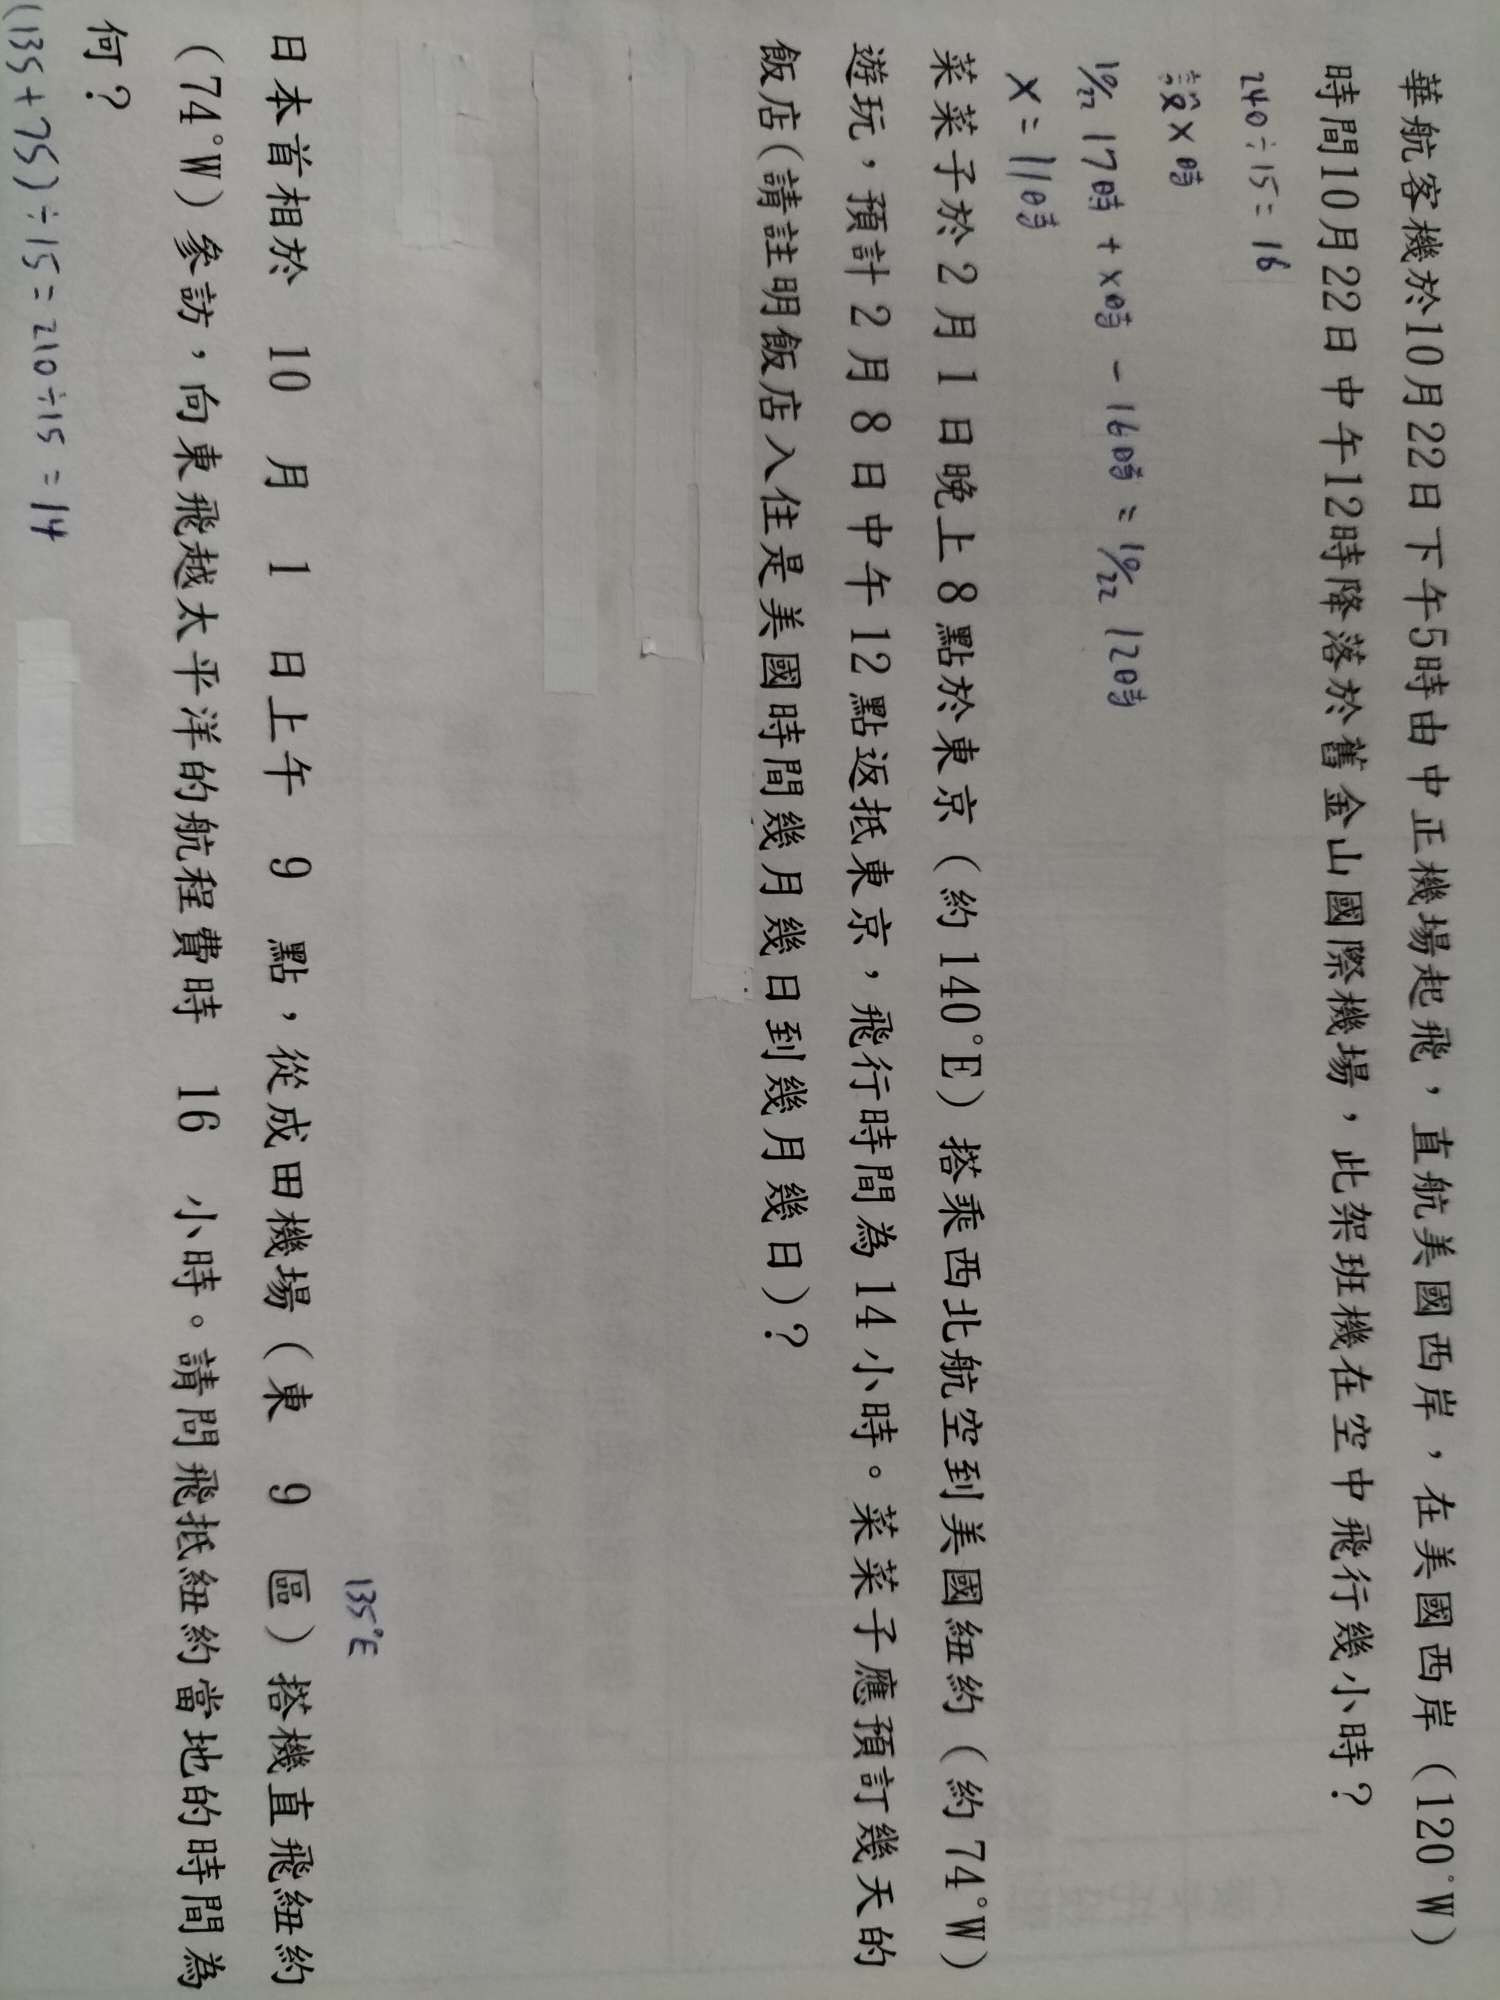 華航客機於10月22日下午5時由中正機場起飛，直航美國西岸，在美國西岸（120°W）
時間10月22日中午12時降落於舊金山國際機場，此架班機在空中飛行幾小時？
240÷15=16
設X時
10/22 17時+X時-16時=10/22 12時
X=11時
菜菜子於2月1日晚上8點於東京（約140°E）搭乘西北航空到美國紐約（約74°W）
遊玩，預計2月8日中午12點返抵東京，飛行時間為14小時。菜菜子應預訂幾天的
飯店（請註明飯店入住是美國時間幾月幾日到幾月幾日）？
135°E
日本首相於 10 月 1 日上午 9 點，從成田機場（東 9 區）搭機直飛紐約
（74°W）參訪，向東飛越太平洋的航程費時 16 小時。請問飛抵紐約當地的時間為
何？
(135+75)÷15=210÷15=14